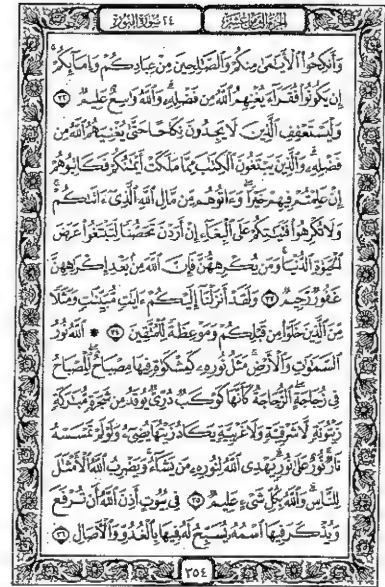 الجزء الثامن عشر ٢٤ سورة النور
وَأَنكِحُوا۟ ٱلْأَيَـٰمَىٰ مِنكُمْ وَٱلصَّـٰلِحِينَ مِنْ عِبَادِكُمْ وَإِمَآئِكُمْ ۚ
إِن يَكُونُوا۟ فُقَرَآءَ يُغْنِهِمُ ٱللَّهُ مِن فَضْلِهِۦ ۗ وَٱللَّهُ وَٰسِعٌ عَلِيمٌ ٣٢
وَلْيَسْتَعْفِفِ ٱلَّذِينَ لَا يَجِدُونَ نِكَاحًا حَتَّىٰ يُغْنِيَهُمُ ٱللَّهُ مِن
فَضْلِهِۦ ۗ وَٱلَّذِينَ يَبْتَغُونَ ٱلْكِتَـٰبَ مِمَّا مَلَكَتْ أَيْمَـٰنُكُمْ فَكَاتِبُوهُمْ
إِنْ عَلِمْتُمْ فِيهِمْ خَيْرًا ۖ وَءَاتُوهُم مِّن مَّالِ ٱللَّهِ ٱلَّذِىٓ ءَاتَىٰكُمْ ۚ
وَلَا تُكْرِهُوا۟ فَتَيَـٰتِكُمْ عَلَى ٱلْبِغَآءِ إِنْ أَرَدْنَ تَحَصُّنًا لِّتَبْتَغُوا۟ عَرَضَ
ٱلْحَيَوٰةِ ٱلدُّنْيَا ۚ وَمَن يُكْرِههُّنَّ فَإِنَّ ٱللَّهَ مِنۢ بَعْدِ إِكْرَٰهِهِنَّ
غَفُورٌ رَّحِيمٌ ٣٣ وَلَقَدْ أَنزَلْنَآ إِلَيْكُمْ ءَايَـٰتٍ مُّبَيِّنَـٰتٍ وَمَثَلًا
مِّنَ ٱلَّذِينَ خَلَوْا۟ مِن قَبْلِكُمْ وَمَوْعِظَةً لِّلْمُتَّقِينَ ٣٤ ۞ ٱللَّهُ نُورُ
ٱلسَّمَـٰوَٰتِ وَٱلْأَرْضِ ۚ مَثَلُ نُورِهِۦ كَمِشْكَوٰةٍ فِيهَا مِصْبَاحٌ ۖ ٱلْمِصْبَاحُ
فِى زُجَاجَةٍ ۖ ٱلزُّجَاجَةُ كَأَنَّهَا كَوْكَبٌ دُرِّىٌّ يُوقَدُ مِن شَجَرَةٍ مُّبَـٰرَكَةٍ
زَيْتُونَةٍ لَّا شَرْقِيَّةٍ وَلَا غَرْبِيَّةٍ يَكَادُ زَيْتُهَا يُضِىٓءُ وَلَوْ لَمْ تَمْسَسْهُ
نَارٌ ۚ نُّورٌ عَلَىٰ نُورٍ ۗ يَهْدِى ٱللَّهُ لِنُورِهِۦ مَن يَشَآءُ ۚ وَيَضْرِبُ ٱللَّهُ ٱلْأَمْثَـٰلَ
لِلنَّاسِ ۗ وَٱللَّهُ بِكُلِّ شَىْءٍ عَلِيمٌ ٣٥ فِى بُيُوتٍ أَذِنَ ٱللَّهُ أَن تُرْفَعَ
وَيُذْكَرَ فِيهَا ٱسْمُهُۥ يُسَبِّحُ لَهُۥ فِيهَا بِٱلْغُدُوِّ وَٱلْـَٔاصَالِ ٣٦
٣٥٤